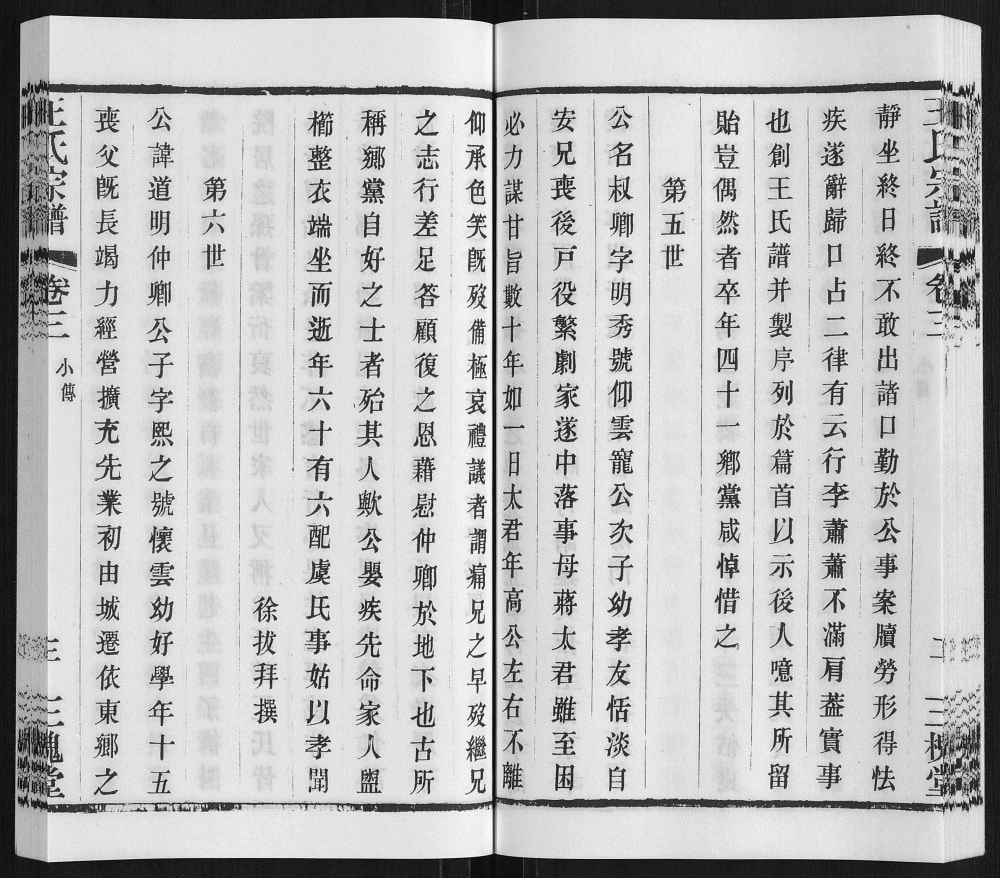 靜坐終日終不敢出諸口勤於公事案牘勞形得怯
疾遂辭歸口占二律有云行李蕭蕭不滿肩葢實事
也創王氏譜并製序列於篇首以示後人噫其所留
貽豈偶然者卒年四十一鄉黨咸悼惜之
第五世
公名叔卿字明秀號仰雲寵公次子幼孝友恬淡自
安兄喪後戸役繁劇家遂中落事母蔣太君雖至困
必力謀甘旨數十年如一日太君年高公左右不離
仰承色笑旣歿備極哀禮議者謂痛兄之早歿繼兄
之志行差足答顧復之恩藉慰仲卿於地下也古所
稱鄉黨自好之士者殆其人歟公嬰疾先命家人盥
櫛整衣端坐而逝年六十有六配虞氏事姑以孝聞
徐拔拜撰
第六世
公諱道明仲卿公子字熙之號懷雲幼好學年十五
喪父旣長竭力經營擴充先業初由城遷依東鄉之
王氏宗譜
卷三
小傳
三
三槐堂